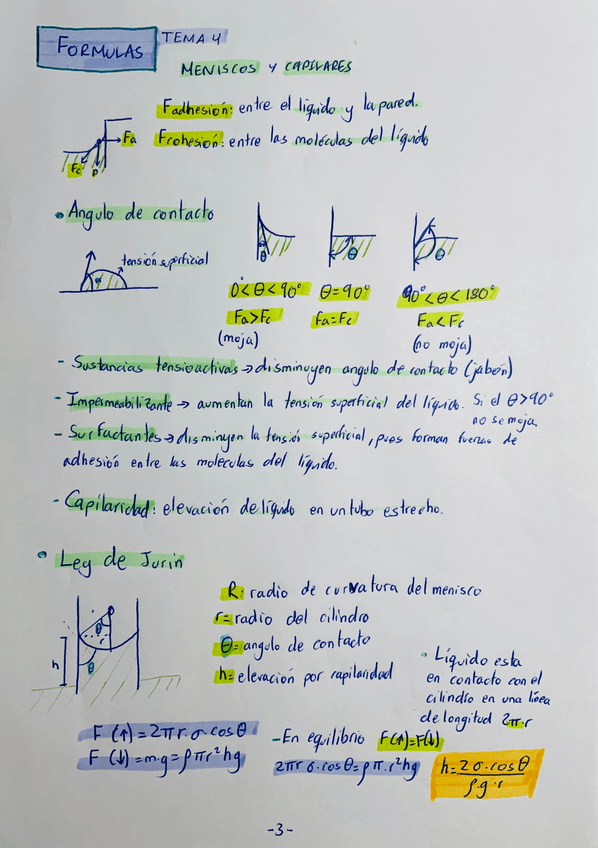 FORMULAS
TEMA 4
MENISCOS Y CAPILARES
Fadhesión: entre el líquido y la pared.
Fcohesión: entre las moléculas del líquido
Fa
Fc
P
• Angulo de contacto
tensión superficial
θ
θ
θ
0°<θ<90° θ=90° 90°<θ<180°
Fa>Fc Fa=Fc Fa<Fc
(moja) (no moja)
- Sustancias tensioactivas → disminuyen angulo de contacto (jabón)
- Impermeabilizante → aumentan la tensión superficial del líquido. Si el θ>90°
no se moja
- Surfactantes → disminuyen la tensión superficial, pues forman fuerzas de
adhesión entre las moleculas del líquido.
- Capilaridad: elevación de líquido en un tubo estrecho.
• Ley de Jurin
R: radio de curvatura del menisco
r = radio del cilindro
θ = angulo de contacto
h = elevación por capilaridad
θ
r
θ
h
• Líquido esta
en contacto con el
cilindro en una línea
de longitud 2π·r
F(↑) = 2πr·σ·cosθ
F(↓) = m·g = ρπr²hg
- En equilibrio F(↑)=F(↓)
2πrσ·cosθ = ρπ·r²hg
h = 2σ·cosθ
ρ·g·r
-3-